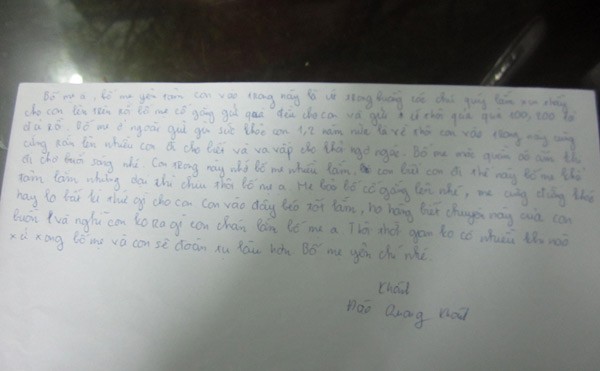 Bố mẹ ạ, bố mẹ yên tâm con vào trong này là về trong buồng các chú quý lắm xin thầy
cho con lên trên rồi bố mẹ cố gắng gửi quà đều cho con và gửi ít thôi quà quá 100, 200 là
được rồi. Bố mẹ ở ngoài giữ gìn sức khỏe con 1, 2 năm nữa là về thôi con vào trong này cũng
cứng rắn lên nhiều con đi cho biết và va vấp cho thôi ngờ nghệc. Bố mẹ mặc quần áo ấm khi
đi cho buổi sáng nhé. Con trong này nhớ bố mẹ nhiều lắm, con biết con đi thế này bố mẹ khổ
tâm lắm nhưng dại thì chịu thôi bố mẹ ạ. Mẹ bảo bố cố gắng lên nhé, mẹ cũng đừng khóc
hay lo bất kì thứ gì cho con con vào đây béo tốt lắm, họ hàng biết chuyện này của con
buồn và nghĩ con ko ra gì con chán lắm bố mẹ ạ. Thôi thời gian ko có nhiều khi nào
xử xong bố mẹ và con sẽ đoàn tụ lâu hơn. Bố mẹ yên chí nhé.
Khải
Đào Quang Khải